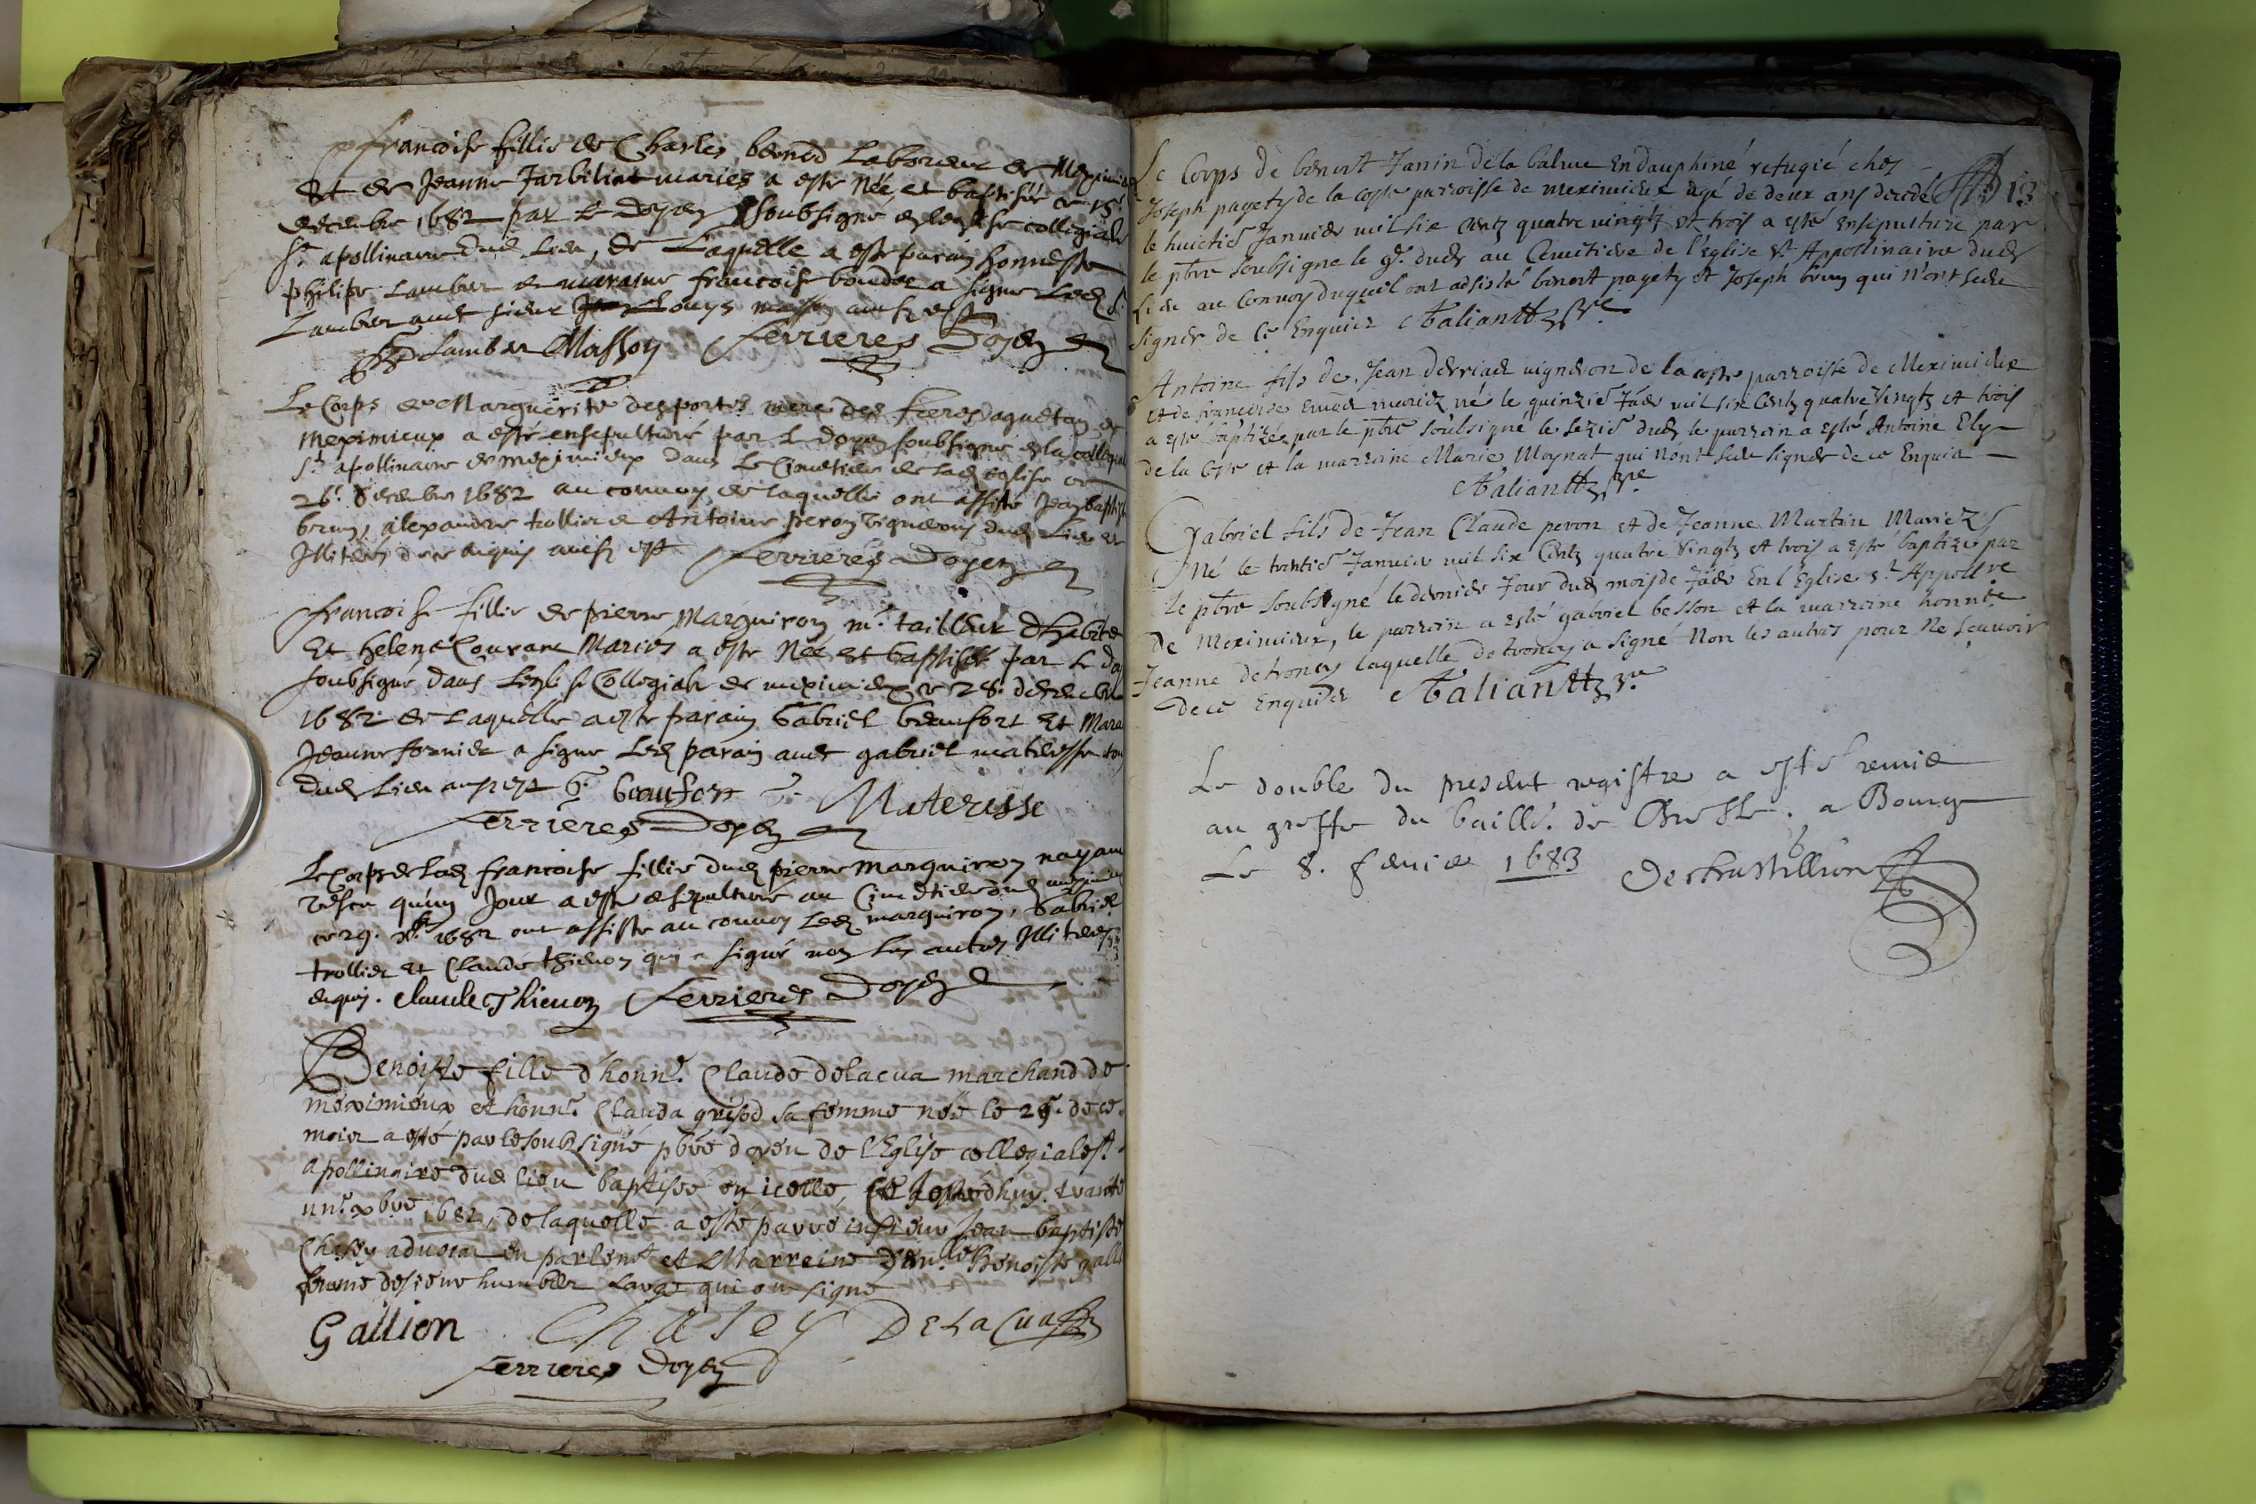 francoise fillie de Charles benod Laboureur de Meximieux
et de Jeanne Jarbiliat mariez a este Née et baptisée ce 15e
decembre 1682 par le Doyen soubsigné en leglise collegiale
St apollinaire dud. Lieu, de Laquelle a este parain honneste
philipe Lamber et maraine francoise a signe Led. Sr
Lamber avec sieur Louys Masson ainsy est
Lamber Masson Ferrieres Doyen
Le Corps de Marguerite desportes mere des freres de
meximieux a esté ensepulturé par le doyen soubsigné de la collegiale
St apollinaire de meximieux dans Le Cimetiere de lad. eglise ce
26e decembre 1682 au convoy de laquelle ont assiste Jean baptiste
brun, alexandre trollier et Antoine peron vignerons dud. Lieu et
Illiterés de ce enquis ainsy est Ferrieres Doyen
francoise fillie de pierre Marguiron me. tailleur d'habits
Et helene Couvare Mariés a este Née et baptisée par le doyen
soubsigné dans Leglise Collegiale de meximieux ce 28e decembre
1682 de Laquelle a este parain Gabriel beaufort et Maraine
Jeanne fornier a signe Led. parain avec gabriel materisse
dud. Lieu ainsy est G. beaufort G. Materisse
Ferrieres Doyen
Le Corps de Lad. francoise fillie dud. pierre Marguiron nayant
vescu qu'un Jour a este ensepulturé au Cimetiere dud. meximieux
ce 29. xbre 1682 ont assiste au convoy Led. marguiron, Gabriel
trollier et Claude thienon qui a signé non Les autres Illiterés
enquis. Claude Thienon Ferrieres Doyen
Benoiste fille d'honne. Claude delacua marchand de
meximieux et honne. Clauda grisod sa femme née le 29e de ce
mois a esté par le soubsigné pbre doyen de l'Eglise collegiale St
Apollinaire dud. lieu baptisée en icelle, ce Jourdhuy trante
un.e xbre 1682, de laquelle a esté parrein sieur Jean baptiste
Chasey advocat en parlemt et Marreine demlle Benoiste gallien
femme de sieur humbert qui on signe
Gallien Chasey DELACUA
Ferrieres Doyen
13
Le Corps de benoit Janin de la balme en dauphiné refugié chez
Joseph pagety de la coste parroisse de meximieux agé de deux ans decedé
le huictie Janvier mil six centz quatre vingtz et trois a esté ensepulturé par
le pbre soubsigne le 9e. dud. au Cemitiere de l'Eglise St Appollinaire dud.
Lieu au Convoy duquel ont adsisté benoit pagety et Joseph brun qui n'ont sceu
signer de ce Enquier Taliantz pre
Antoine fils de Jean derriad vigneron de la coste parroisse de Meximieux
et de francoise mariez né le quinzie Jāer mil six centz quatre vingtz et trois
a este baptizé par le pbre soubsigné le sezie dud. le parrein a esté Antoine Ely
de la coste et la marreine Marie Moynat qui n'ont sceu signer de ce Enquis
Taliantz pre
Gabriel fils de Jean Claude peron et de Jeanne Martin Mariez
Né le trentie Janvier mil six centz quatre vingtz et trois a esté baptize par
le pbre soubsigné le dernier Jour dud. mois de Jāer en l'Eglise St Appollre
de Meximieux, le parrein a esté gabriel besson et la marreine honnte
Jeanne detroncy laquelle detroncy a signé Non les autres pour ne sçavoir
de ce enquier Taliantz pre
Le double du present registre a esté remis
au greffe du baillé. de Bresse. a Bourg
Le 8. fevrier 1683 Dechastillion